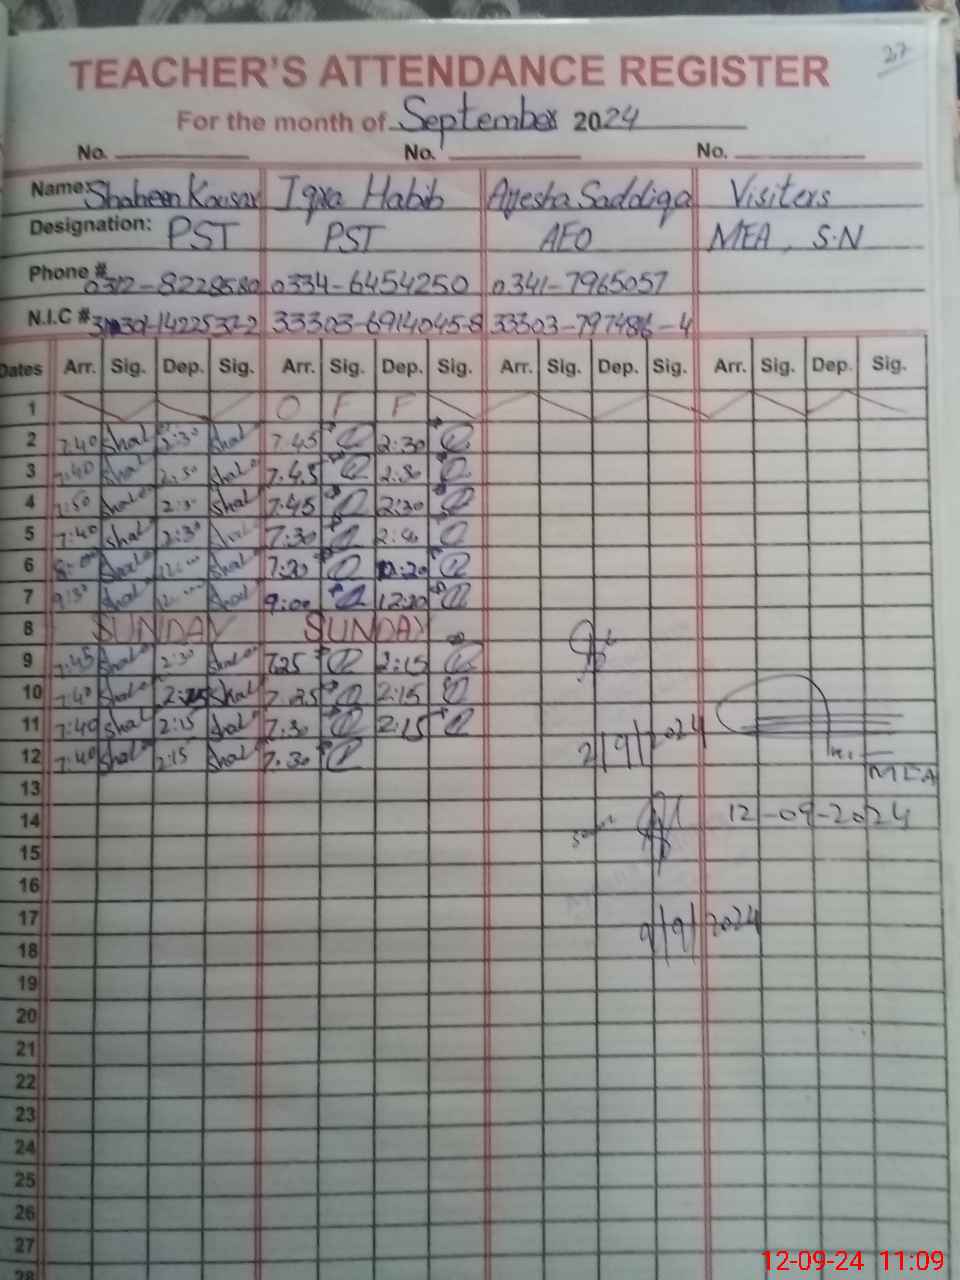 27
TEACHER'S ATTENDANCE REGISTER
For the month of September 2024
No. No. No.
Name: Shaheen Kousar Iqra Habib Ayesha Saddiqa Visiters
Designation: PST PST AEO MEA, S.N
Phone # 0312-8228580 0334-6454250 0341-7965057
N.I.C # 33303-6914045-8
Dates Arr. Sig. Dep. Sig. Arr. Sig. Dep. Sig. Arr. Sig. Dep. Sig. Arr. Sig. Dep. Sig.
1 O F F
2 7:40 Shal 2:30 Shal 7.45 2:30
3 7:40 Shal 2:30 Shal 7.45 2:30
4 7:50 Shal 2:30 Shal 7.45 2:30
5 7:40 Shal 2:30 Shal 7.30
6 8:00 Shal 12:00 Shal 7:20 12:20
7 Shal 12:00 Shal 9:00
8 SUNDAY SUNDAY
9 7:45 Shal 2:30 Shal 7.25 2:15
10 7:40 Shal Shal 7.25 2:15
11 7:40 Shal 2:15 Shal 7.30 2:15
12 7:40 Shal 2:15 Shal 7.30 2/9/2024
MEA
13
14 12-09-2024
15
16
17 9/9/2024
18
19
20
21
22
23
24
25
26
27
28
12-09-24 11:09